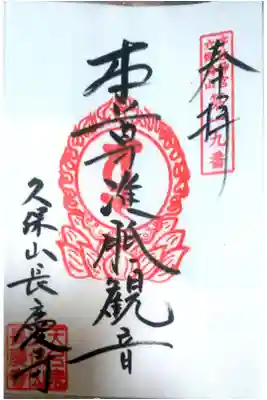 奉拝
本尊進胝観音
久保山長慶寺